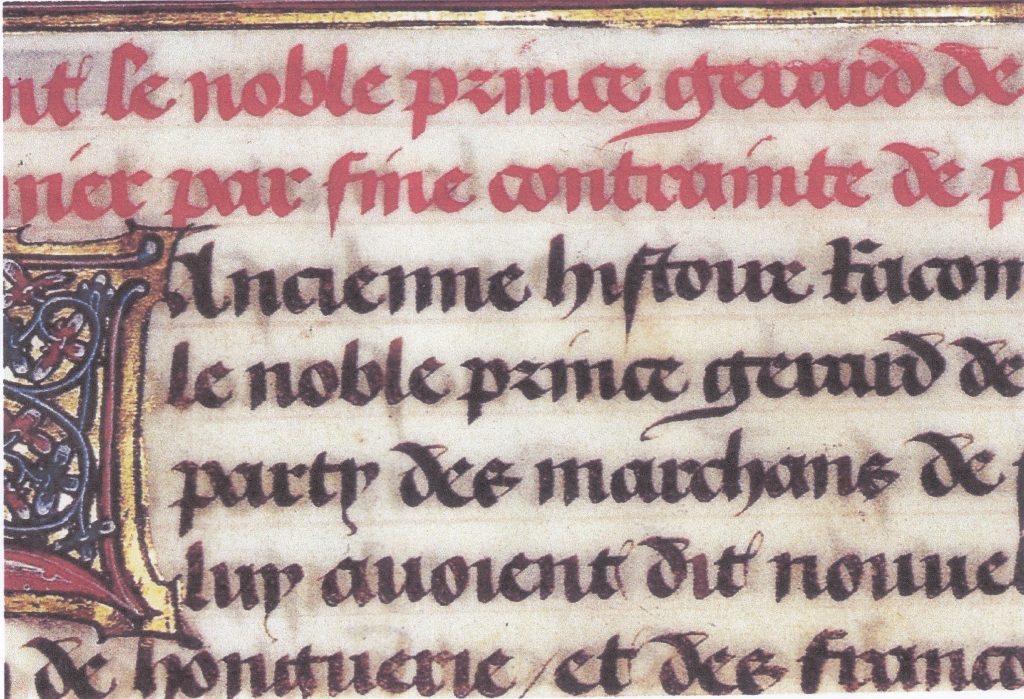 nt le noble prince gerard de
nier par fine contrainte de p
Ancienne histoire racom
le noble prince gerard de
party des marchans de
luy auoient dit nouuel
de honguerie / et des franco